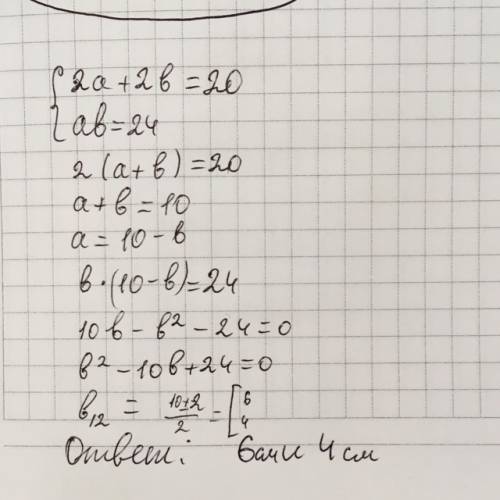 {2a + 2b = 20
ab = 24
2(a + b) = 20
a + b = 10
a = 10 - b
b·(10 - b) = 24
10b - b² - 24 = 0
b² - 10b + 24 = 0
b₁₂ = (10±2)/2 = [6 4
Ответ: 6см и 4 см